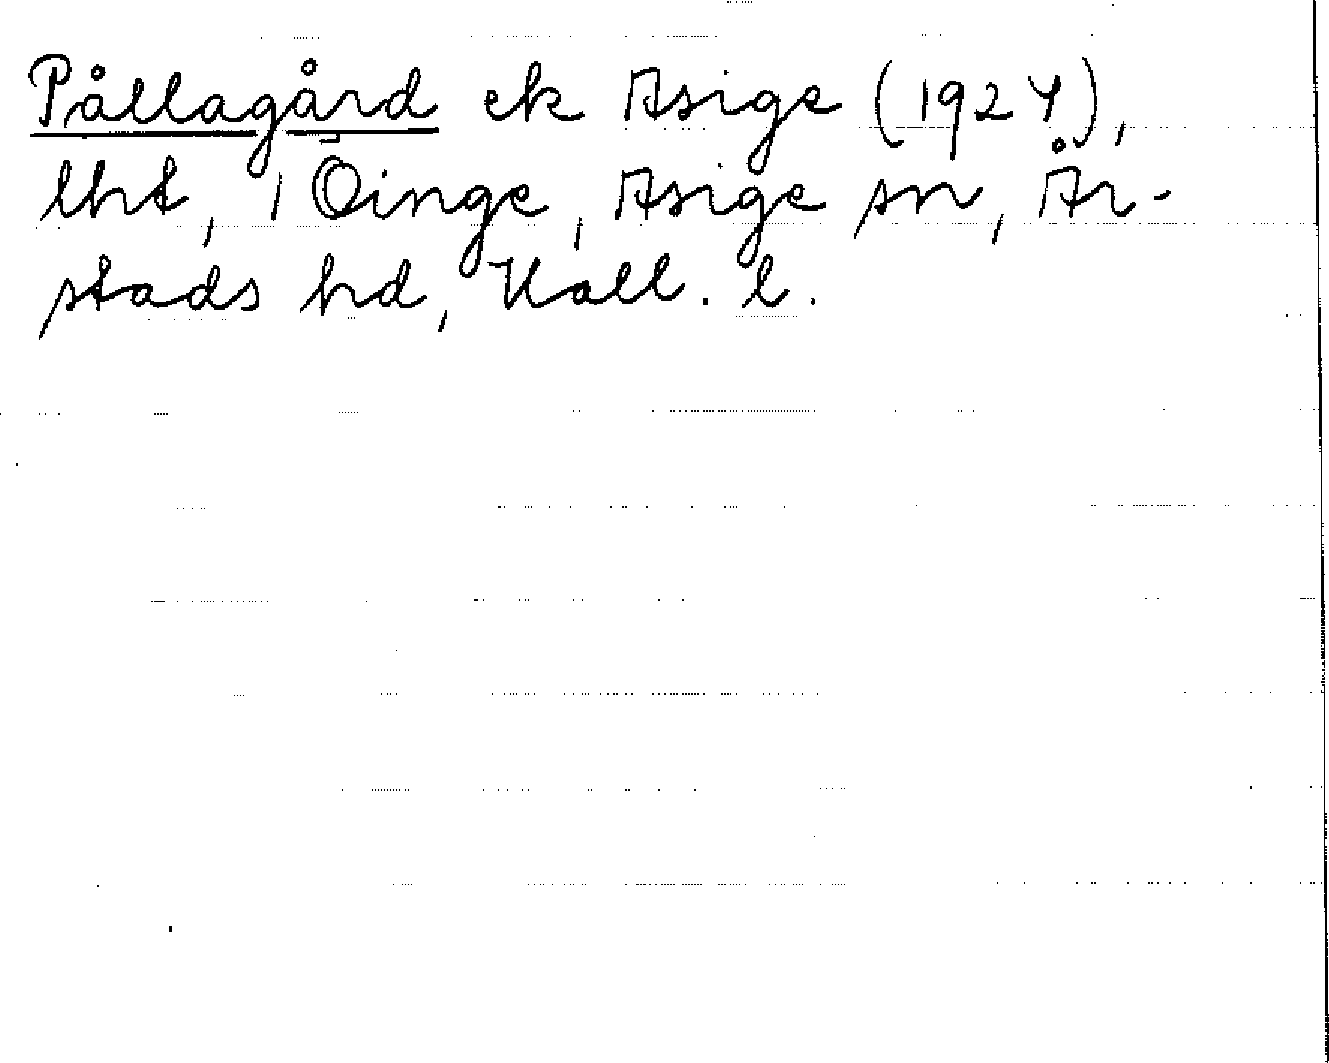 Pållagård ek Asige (1924),
lht, 1 Öinge, Asige sn, År-
stads hd, Hall. l.